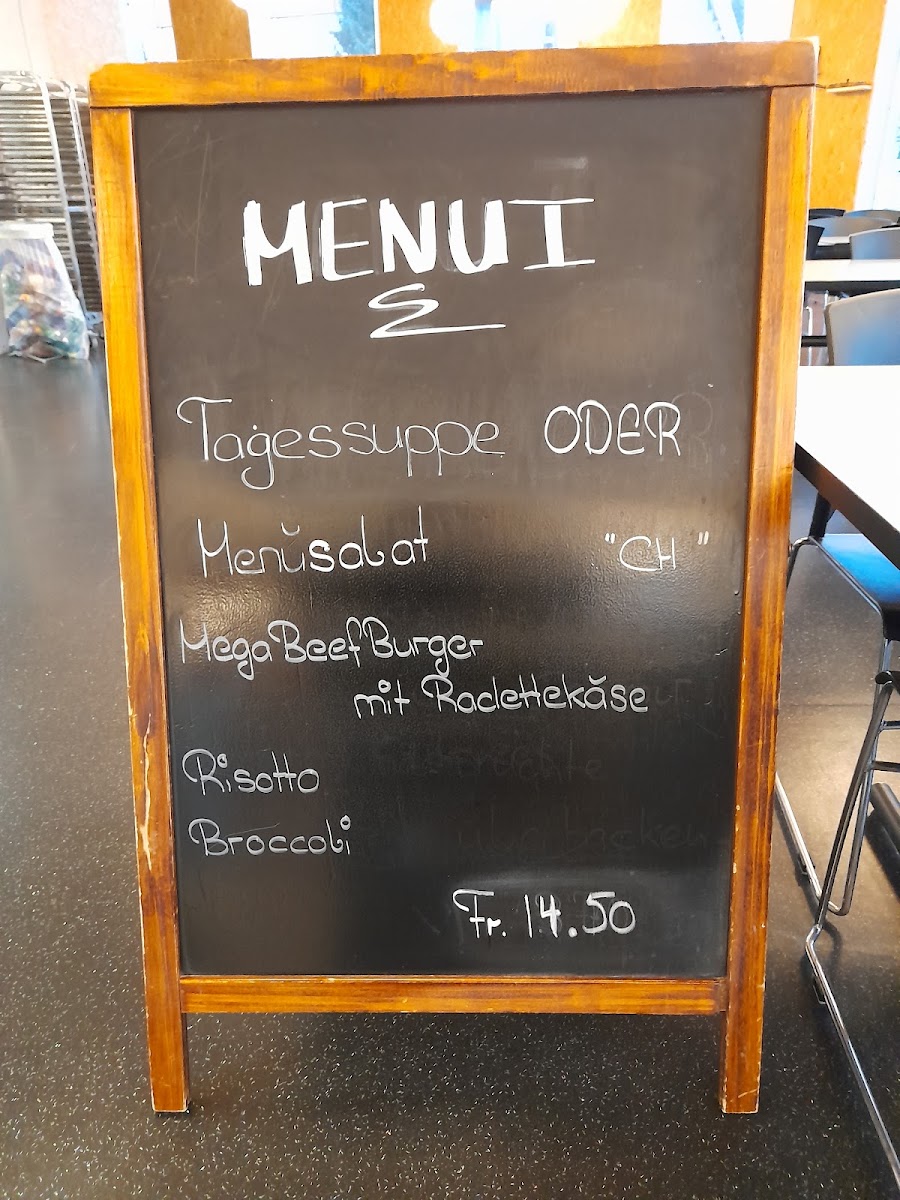 MENU I
Tagessuppe ODER
Menüsalat "CH"
Mega Beef Burger
mit Raclettekäse
Risotto
Broccoli
Fr. 14.50